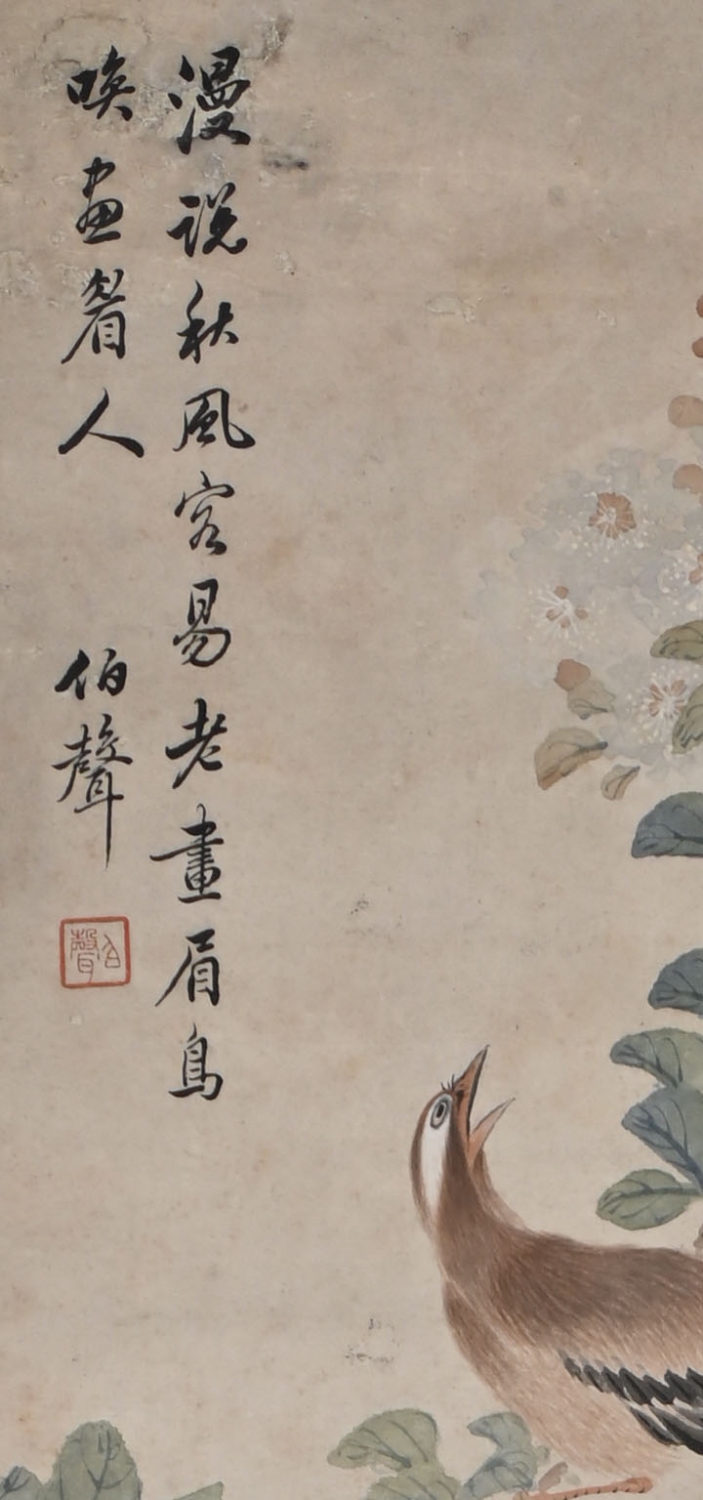 漫說秋風容易老畫眉鳥
喚畫睂人
伯聲